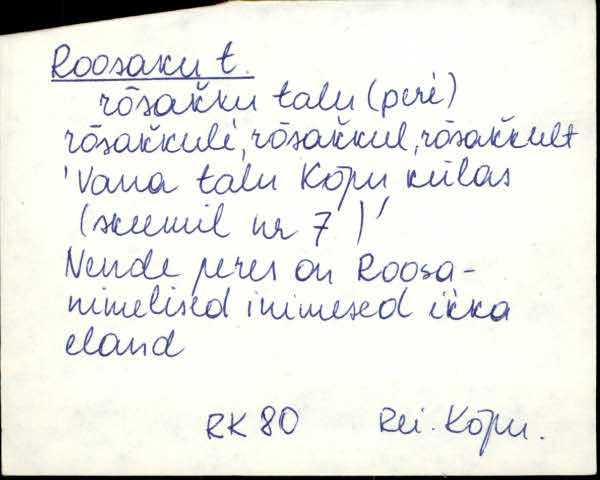 Roosaku t.
rōsak̆ku talu (perè)
rōsak̆kulè, rōsak̆kul, rōsak̆kult
'Vana talu Kõpu külas
(skeemil nr 7)'
Nende peres on Roosa-
nimelised inimesed ikka
eland
RK 80 Rei. Kõpu.